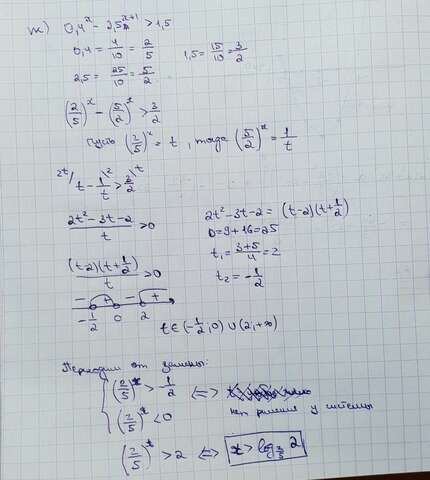 ж) 0,4^x - 2,5^{x+1} > 1,5
0,4 = 4/10 = 2/5
1,5 = 15/10 = 3/2
2,5 = 25/10 = 5/2
(2/5)^x - (5/2)^x > 3/2
Пусть (2/5)^x = t, тогда (5/2)^x = 1/t
2t/ t - 1\2/t > 3\t/2
(2t² - 3t - 2)/t > 0
2t² - 3t - 2 = (t-2)(t+1/2)
D = 9 + 16 = 25
t₁ = (3+5)/4 = 2
t₂ = -1/2
(t-2)(t+1/2)/t > 0
- + - +
-1/2 0 2
t ∈ (-1/2, 0) ∪ (2, +∞)
Переходим от замены:
(2/5)^x > -1/2 <=>
(2/5)^x < 0 нет решения у системы
(2/5)^t > 2 <=> x > log_{2/5} 2